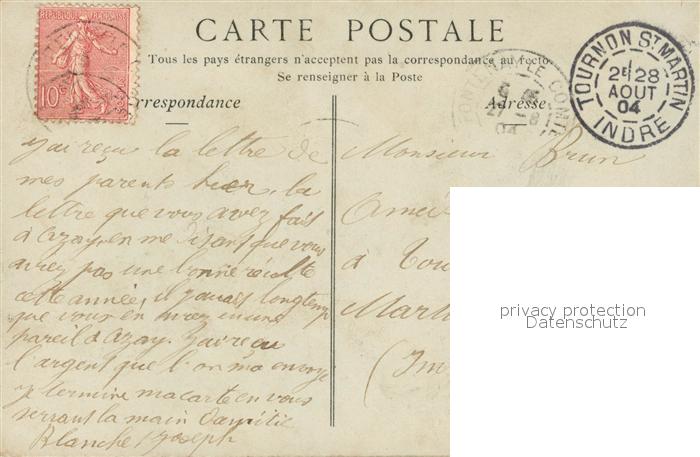 CARTE POSTALE
Tous les pays étrangers n'acceptent pas la correspondance au recto
Se renseigner à la Poste
RÉPUBLIQUE FRANÇAISE
10c
rrespondance
Adresse
FONTENAY LE COMTE
04
TOURNON ST MARTIN
2E 28
AOUT
04
INDRE
j'ai reçu la lettre de
mes parents bien, la
lettre que vous avez fait
à azay en me disant que vous
avez pas une bonne récolte
cette année, il
que vous en
pareil à azay. J'ai reçu
l'argent que l'on m'a envoyé
je termine ma carte en vous
serrant la main d'amitié
Blanche Joseph
Monsieur Brun
à Tou
Martin
(In
privacy protection
Datenschutz